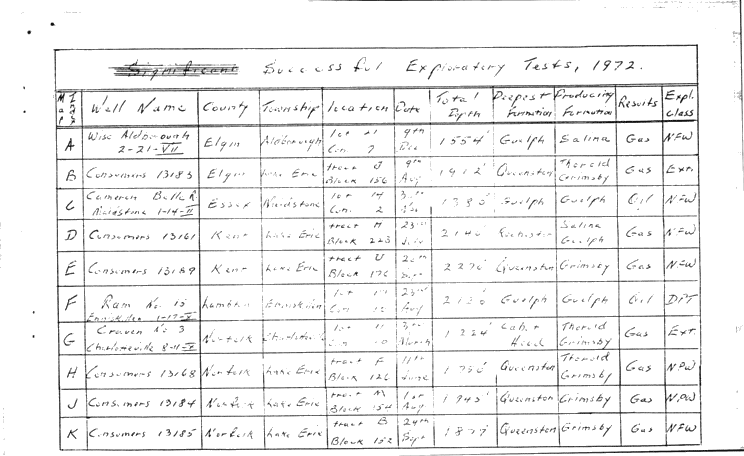 Significant Successful Exploratory Tests, 1972.
Map Well Name County Township location Date Total Depth Deepest Formation Producing Formation Results Expl. class
A Wise Aldborough 2-21-VII Elgin Aldborough lot 21 Con. 7 9th Dec 1554' Guelph Salina Gas NFW
B Consumers 13183 Elgin Lake Erie tract J Block 156 9th Aug 1912' Queenston Thorold Grimsby Gas Ext.
C Cameron Belle R. Maidstone 1-14-II Essex Maidstone lot 14 Con. 2 Guelph Guelph Oil NFW
D Consumers 13161 Kent Lake Erie tract H Block 223 23rd Rochester Salina Guelph Gas NFW
E Consumers 13189 Kent Lake Erie tract U Block 176 Sept Queenston Grimsby Gas NFW
F Ram No. 15 Enniskillen 1-17-X Lambton Enniskillen lot Con. 23rd Aug Guelph Guelph Oil DPT
G Craven No 3 Charlotteville 8-11-X Norfolk Charlotteville lot 11 Con. 10 March 1224' Cabot Head Thorold Grimsby Gas Ext.
H Consumers 13168 Norfolk Lake Erie tract F Block 126 11th June Queenston Thorold Grimsby Gas NPW
J Consumers 13184 Norfolk Lake Erie tract M Block 154 1st Aug Queenston Grimsby Gas NPW
K Consumers 13185 Norfolk Lake Erie tract B Block 152 24th Sept Queenston Grimsby Gas NFW